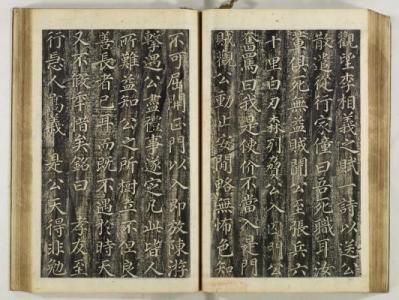 觀望李相義之賦一詩以送公
散遣從行家僮曰吾死職耳汝
輩俱死無益賊聞公至張兵六
十里白刃森列脅公入因叫公
奮罵曰我是使价不當入是門
賊觀公動止安閒略無怖色知
不可屈開正門以入即放陳游
擊遇公盡禮事遂定凡此皆人
所難益知公之所樹立不但良
善長者已耳而既不遇於時天
又不假年惜矣銘曰 孝友至
行急人高義 是公天得非勉